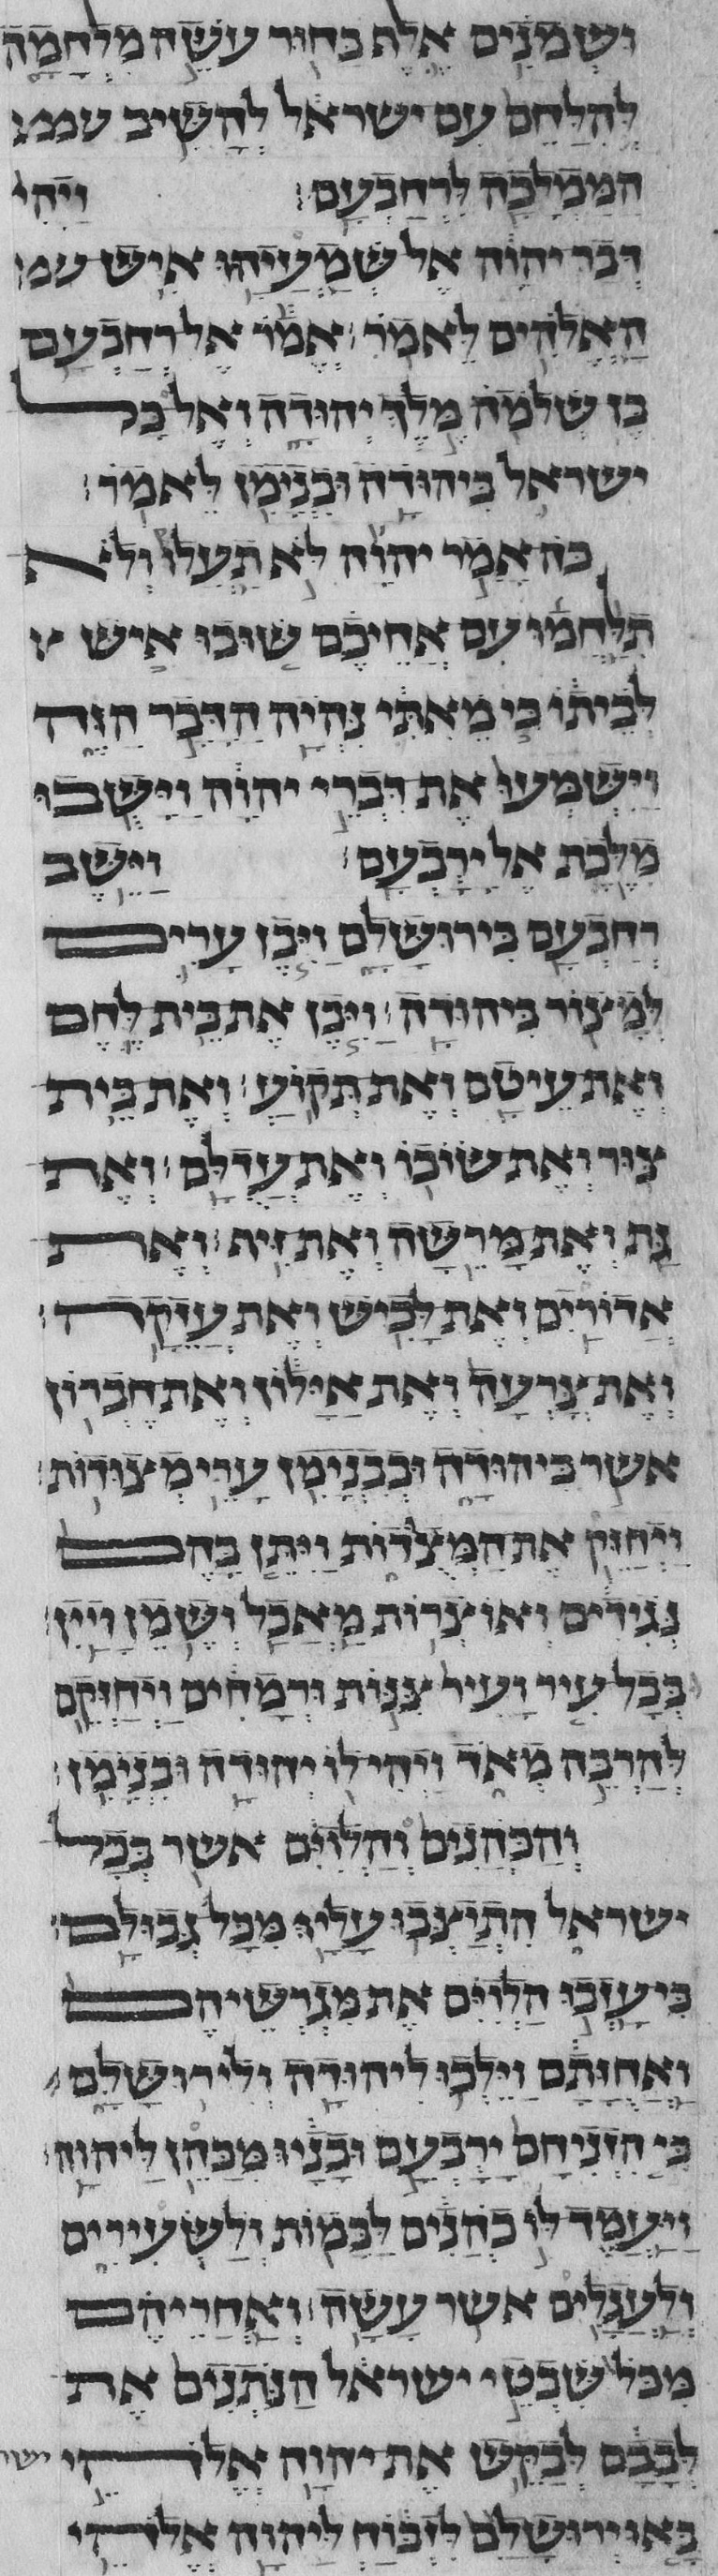 ושמנים אלף בחור עשה מלחמה
להלחם עם ישראל להשיב
הממלכה לרחבעם׃ ויהי
דבר יהוה אל שמעיהו איש
האלהים לאמר׃ אמר אל רחבעם
בן שלמה מלך יהודה ואל כל
ישראל ביהודה ובנימן לאמר׃
כה אמר יהוה לא תעלו ולא
תלחמו עם אחיכם שובו איש
לביתו כי מאתי נהיה הדבר הזה
וישמעו את דברי יהוה וישבו
מלכת אל ירבעם׃ וישב
רחבעם בירושלם ויבן ערים
למצור ביהודה׃ ויבן את בית לחם
ואת עיטם ואת תקוע׃ ואת בית
צור ואת שוכו ואת עדלם׃ ואת
גת ואת מרשה ואת זיף׃ ואת
אדורים ואת לכיש ואת עזקה׃
ואת צרעה ואת אילון ואת חברון
אשר ביהודה ובבנימן ערי מצורות׃
ויחזק את המצרות ויתן בהם
נגידים ואוצרות מאכל ושמן ויין׃
בכל עיר ועיר צנות ורמחים ויחזקם
להרבה מאד ויהי לו יהודה ובנימן׃
והכהנים והלוים אשר בכל
ישראל התיצבו עליו מכל גבולם׃
כי עזבו הלוים את מגרשיהם
ואחזתם וילכו ליהודה ולירושלם
כי הזניחם ירבעם ובניו מכהן ליהוה׃
ויעמד לו כהנים לבמות ולשעירים
ולעגלים אשר עשה׃ ואחריהם
מכל שבטי ישראל הנתנים את
לבבם לבקש את יהוה אלהי ישר
באו ירושלם לזבוח ליהוה אלהי